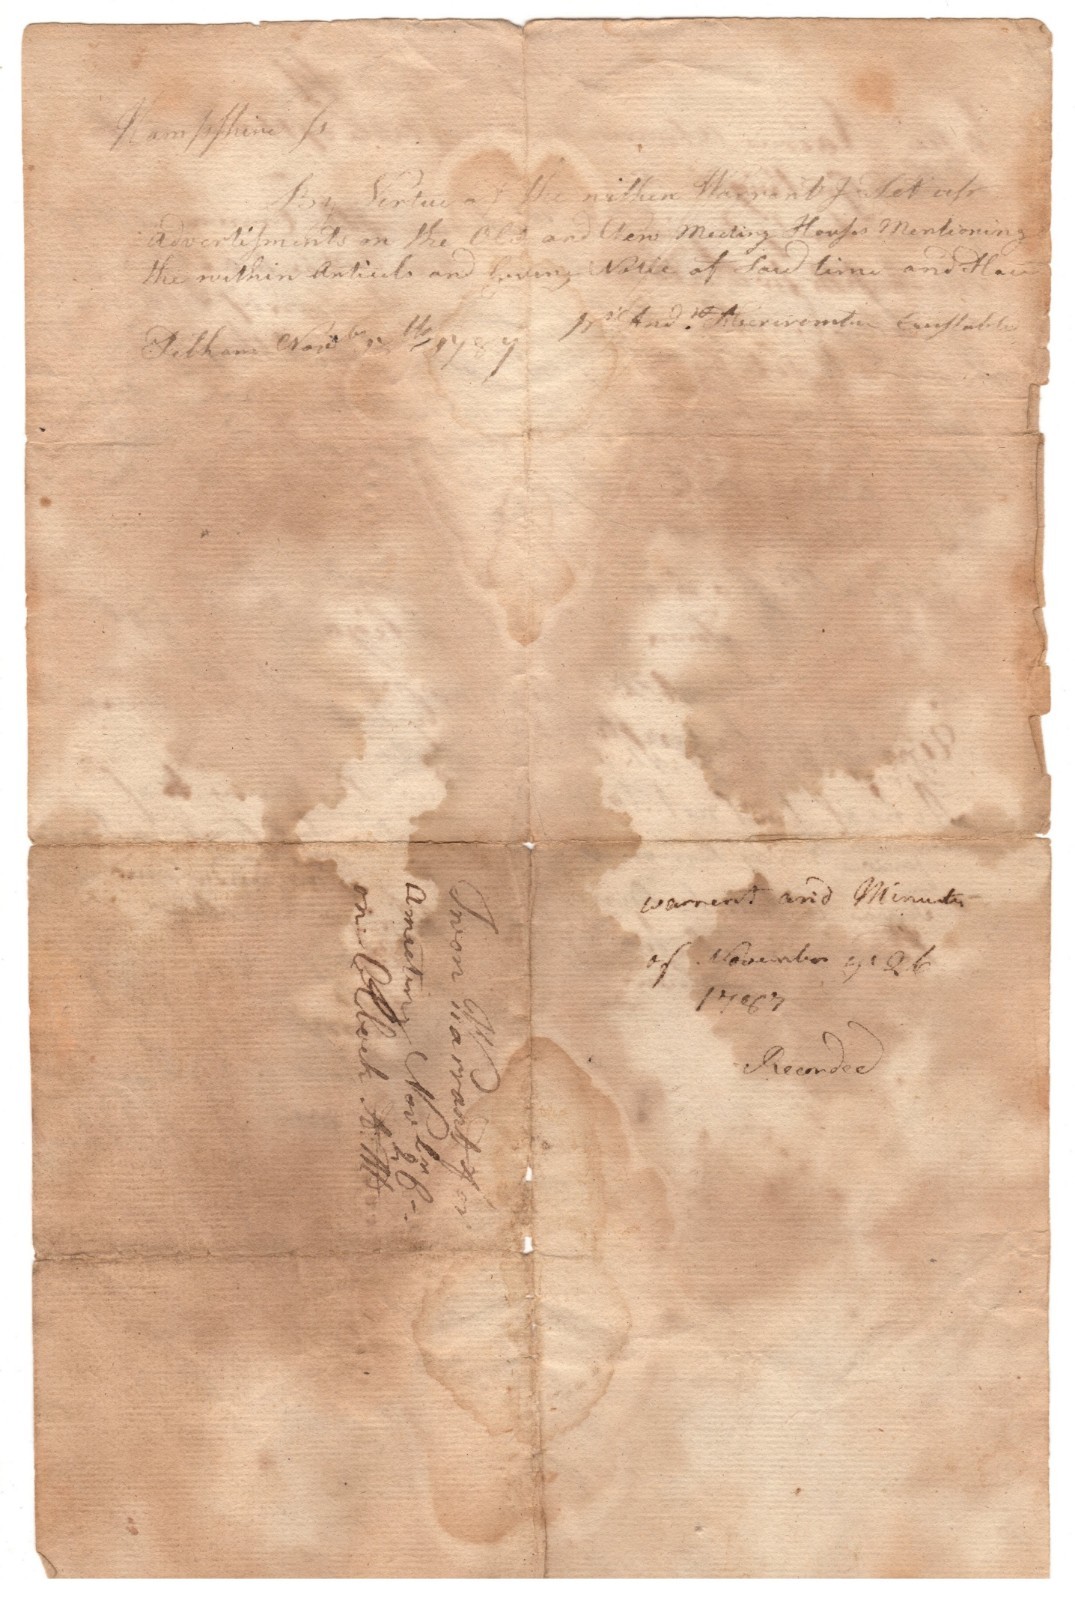 Hampshire ss
By Virtue of the within Warrant I Set up
Advertisments on the Old and New Meeting Houses Mentioning
the within Articels and Giving Notice of Said time and Place
Pr And.w Abercrombie Constable
Pelham Novbr 1787
Town Warrant for
A meeting Novbr 26th
one OClock
warrent and Minutes
of November ye 26
1787
Recorded